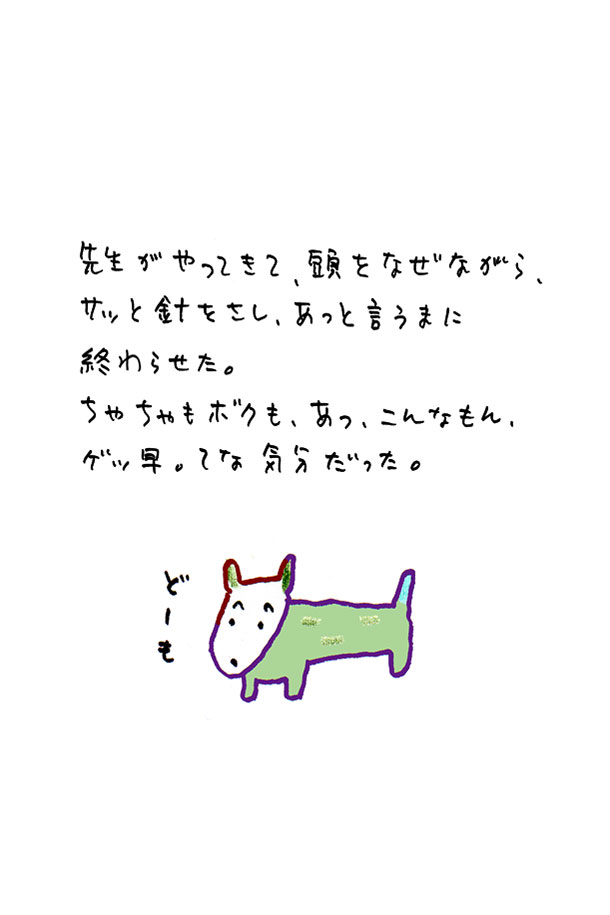 先生がやってきて、頭をなぜながら、
サッと針をさし、あっと言うまに
終わらせた。
ちゃちゃもボクも、あっ、こんなもん、
ゲッ早。てな気分だった。
どーも